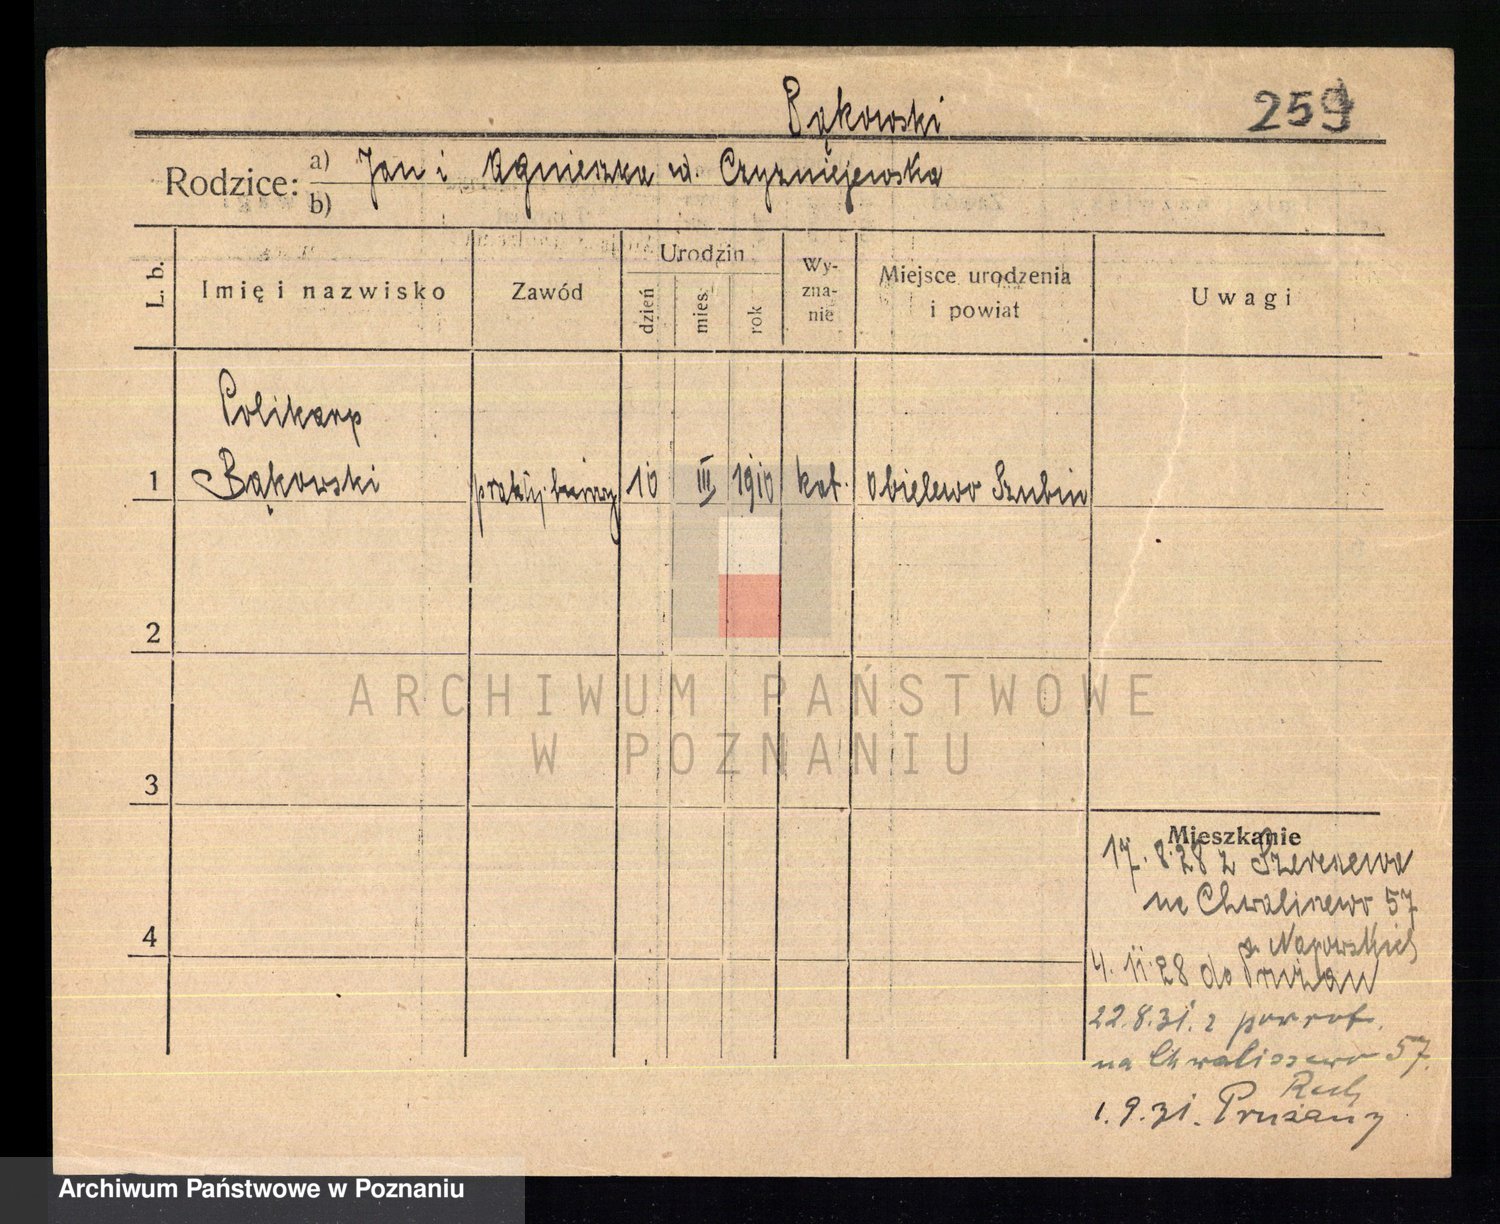 Bąkowski
259
Rodzice: a) Jan i Agnieszka ur. Czyżniejewska
b)
L. b.
Imię i nazwisko
Zawód
Urodzin
dzień
mies.
rok
Wy-
zna-
nie
Miejsce urodzenia
i powiat
Uwagi
Polikarp
1 Bąkowski 10 III 1910 kat. Obielewo Szubin
2
3
4
ARCHIWUM PAŃSTWOWE
W POZNANIU
Mieszkanie
17.8.28 z Szereszewa
na Chwaliszewo 57
4.11.28 do Prużan
22.8.31. z powrot.
na Chwaliszewo 57.
1.9.31. Prużany
Archiwum Państwowe w Poznaniu